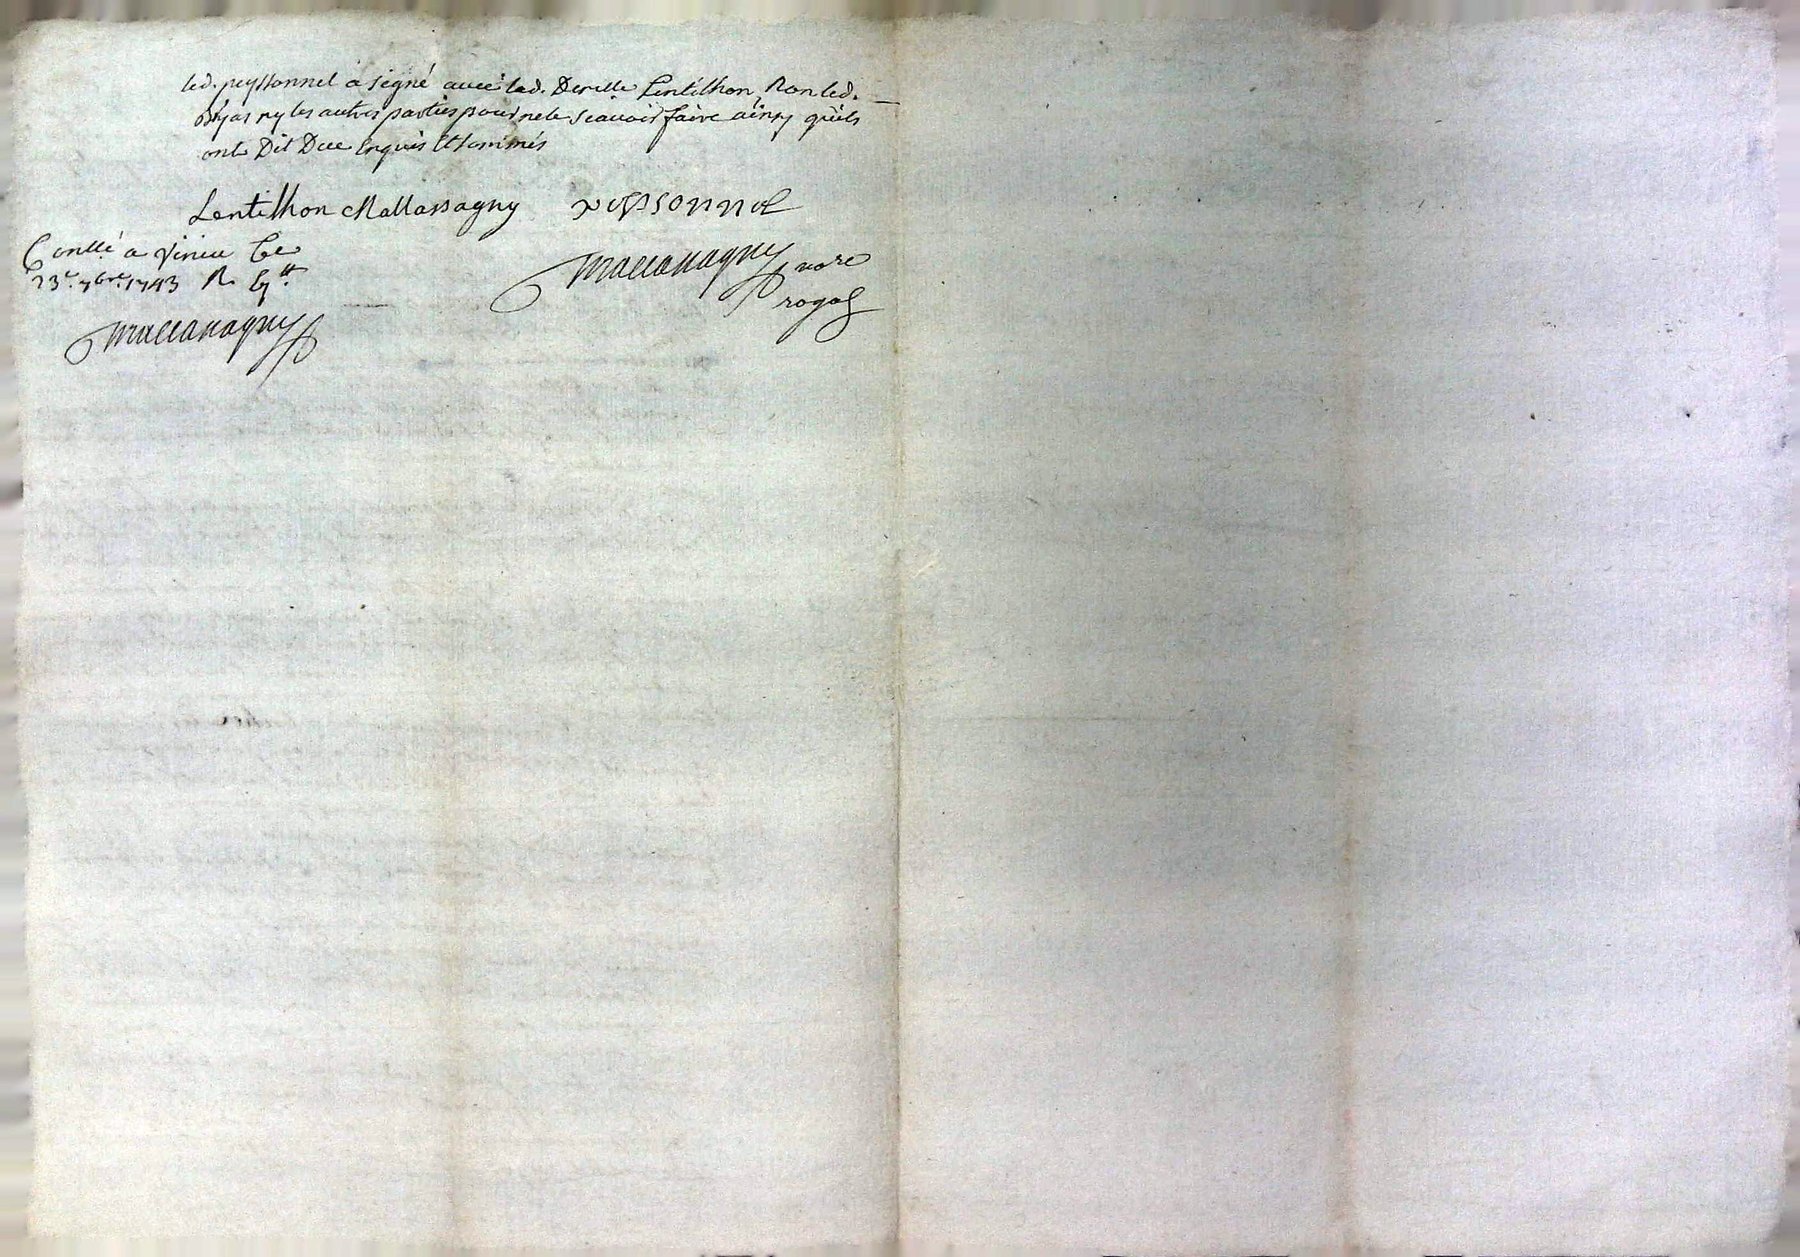 led. peyssonnel a signé avec led. Deville Lentilhon, Non led.
ny les autres parties pour ne le scavoir faire ainsy quils
ont Dit Dee Enquis Et sommés
Lentilhon Mallassagny peyssonnel
Conllé a Virieu Le
23e. 7bre. 1743 R.
Mallassagny nore
royal
Mallassagny